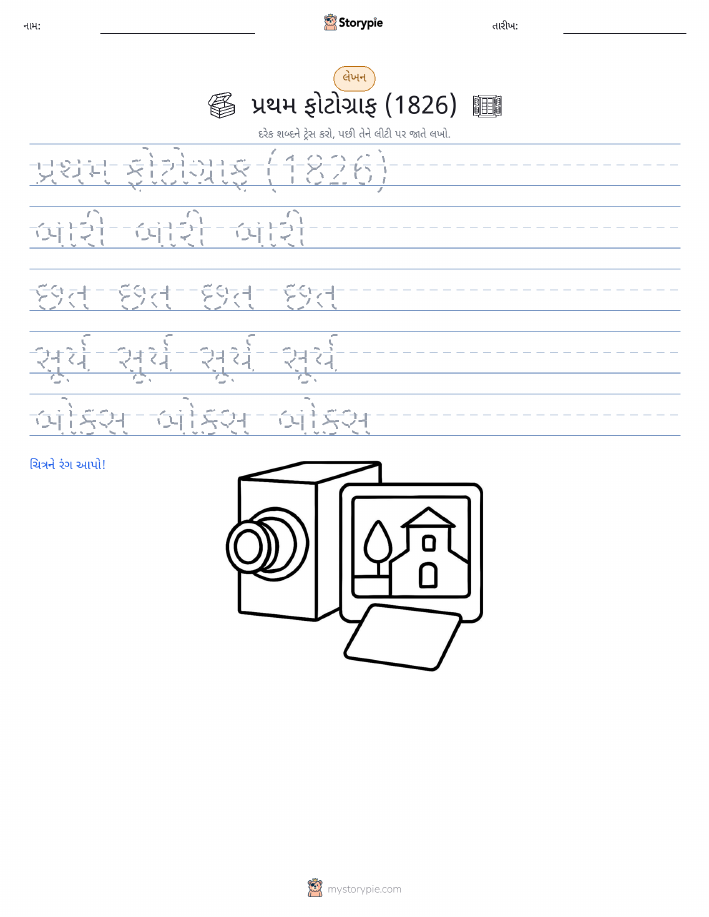 નામ: Storypie તારીખ:
લેખન
પ્રથમ ફોટોગ્રાફ (1826)
દરેક શબ્દને ટ્રેસ કરો, પછી તેને લીટી પર જાતે લખો.
પ્રથમ ફોટોગ્રાફ (1826)
બારી બારી બારી
છત છત છત છત
સૂર્ય સૂર્ય સૂર્ય સૂર્ય
બોક્સ બોક્સ બોક્સ
ચિત્રને રંગ આપો!
mystorypie.com